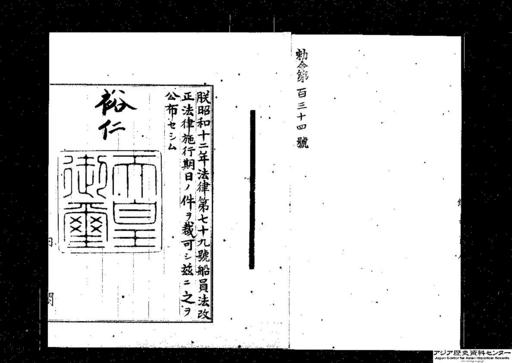 勅令第百三十四號
朕昭和十二年法律第七十九號船員法改
正法律施行期日ノ件ヲ裁可シ茲ニ之ヲ
公布セシム
裕仁
天皇
御璽
内閣
アジア歴史資料センター
Japan Center for Asian Historical Records